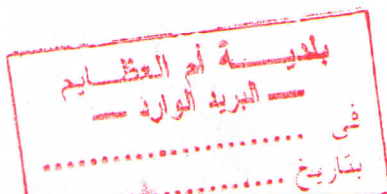 بلديـــة أم العظـــايم
— البريد الوارد —
في ........................
بتاريخ ....................